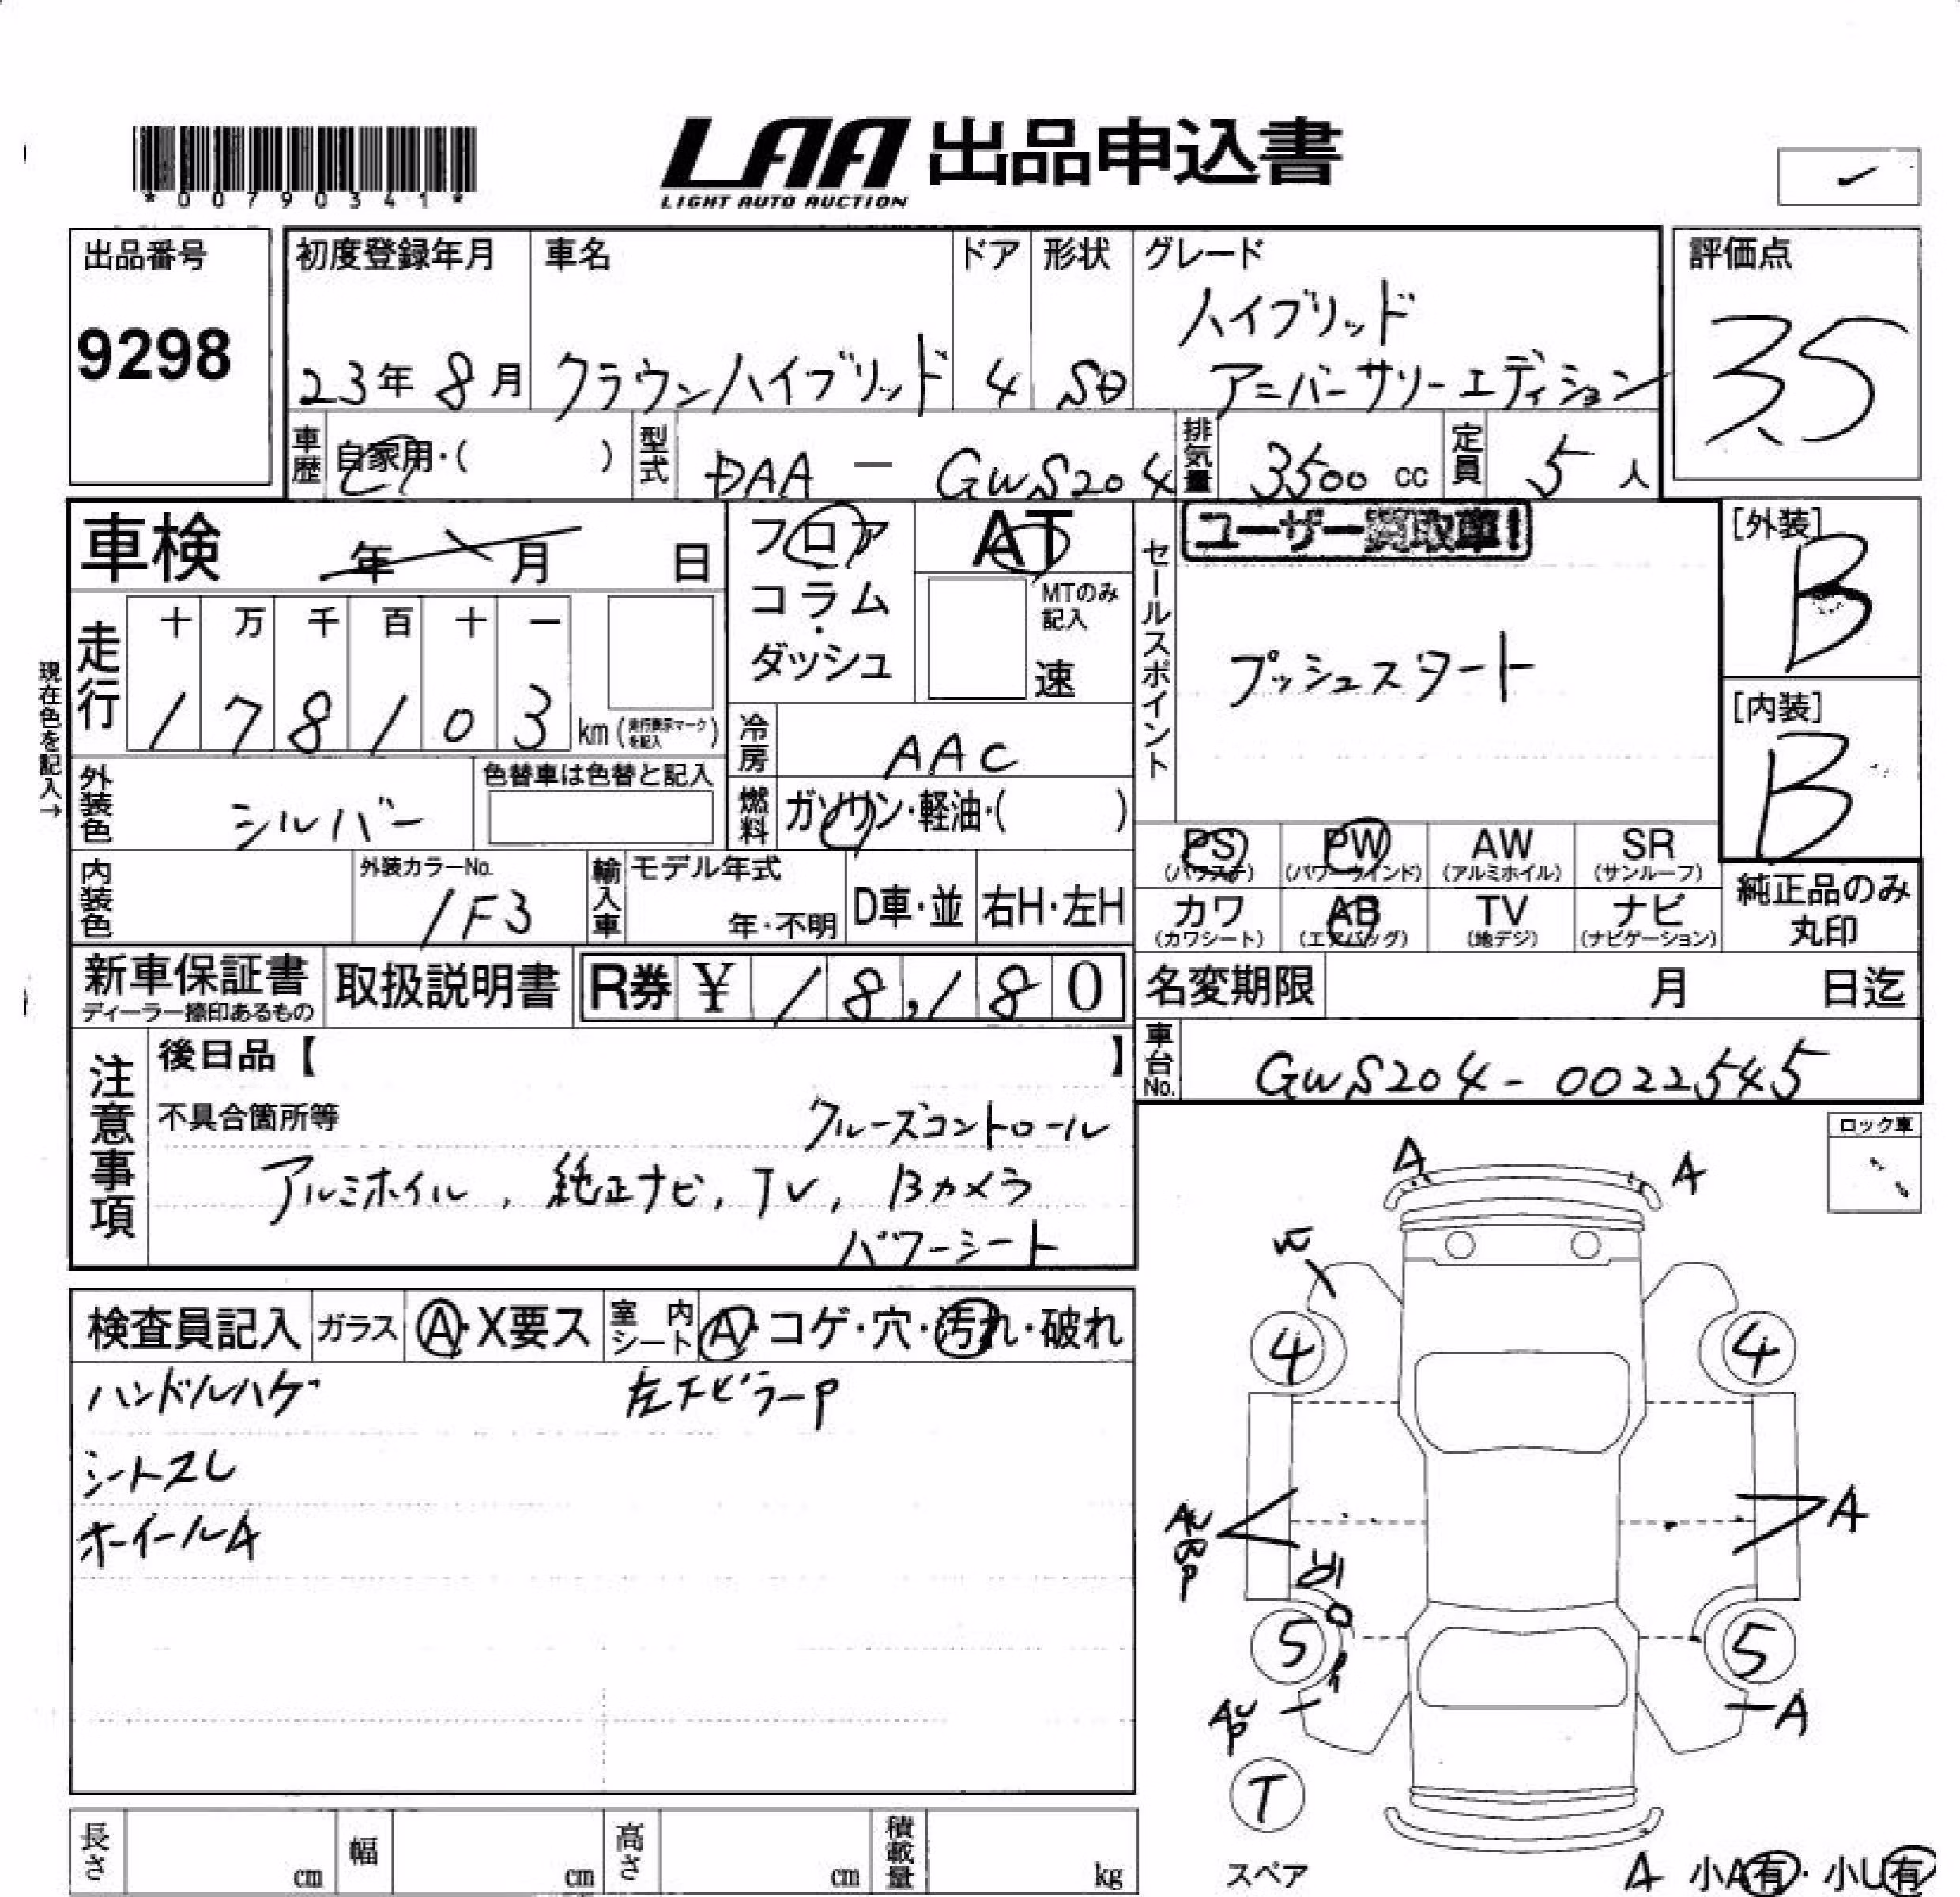 *00790341*
LAA 出品申込書
LIGHT AUTO AUCTION
出品番号
9298
初度登録年月
23年 8月
車名
クラウンハイブリッド
ドア
4
形状
SD
グレード
ハイブリッド
アニバーサリーエディション
評価点
3.5
車歴
自家用・( )
型式
DAA - GWS204
排気量
3500 cc
定員
5 人
車検 年 月 日
フロア
コラム
・
ダッシュ
AT
MTのみ
記入
速
セールスポイント
ユーザー買取車!
プッシュスタート
[外装]
B
[内装]
B
現在色を記入→
走行
十 万 千 百 十 一
1 7 8 1 0 3 km (走行表示マークを記入)
冷房
AAC
外装色
シルバー
色替車は色替と記入
燃料
ガソリン・軽油・( )
PS
(パワステ)
PW
(パワーウインド)
AW
(アルミホイル)
SR
(サンルーフ)
内装色
外装カラーNo.
1F3
輸入車
モデル年式
年・不明
D車・並
右H・左H
カワ
(カワシート)
AB
(エアバッグ)
TV
(地デジ)
ナビ
(ナビゲーション)
純正品のみ
丸印
新車保証書
ディーラー捺印あるもの
取扱説明書
R券 ¥ 18,180
名変期限 月 日迄
車台No.
GWS204-0022545
注意事項
後日品【 】
不具合箇所等
クルーズコントロール
アルミホイル, 純正ナビ, TV, Bカメラ
パワーシート
ロック車
検査員記入
ガラス
A・X要ス
室内シート
A・コゲ・穴・汚れ・破れ
ハンドルハゲ
左下ピラーP
シートスレ
ホイールA
A
A
4
4
A
5
5
A
T
スペア
A 小A有・小U有
長さ cm
幅 cm
高さ cm
積載量 kg